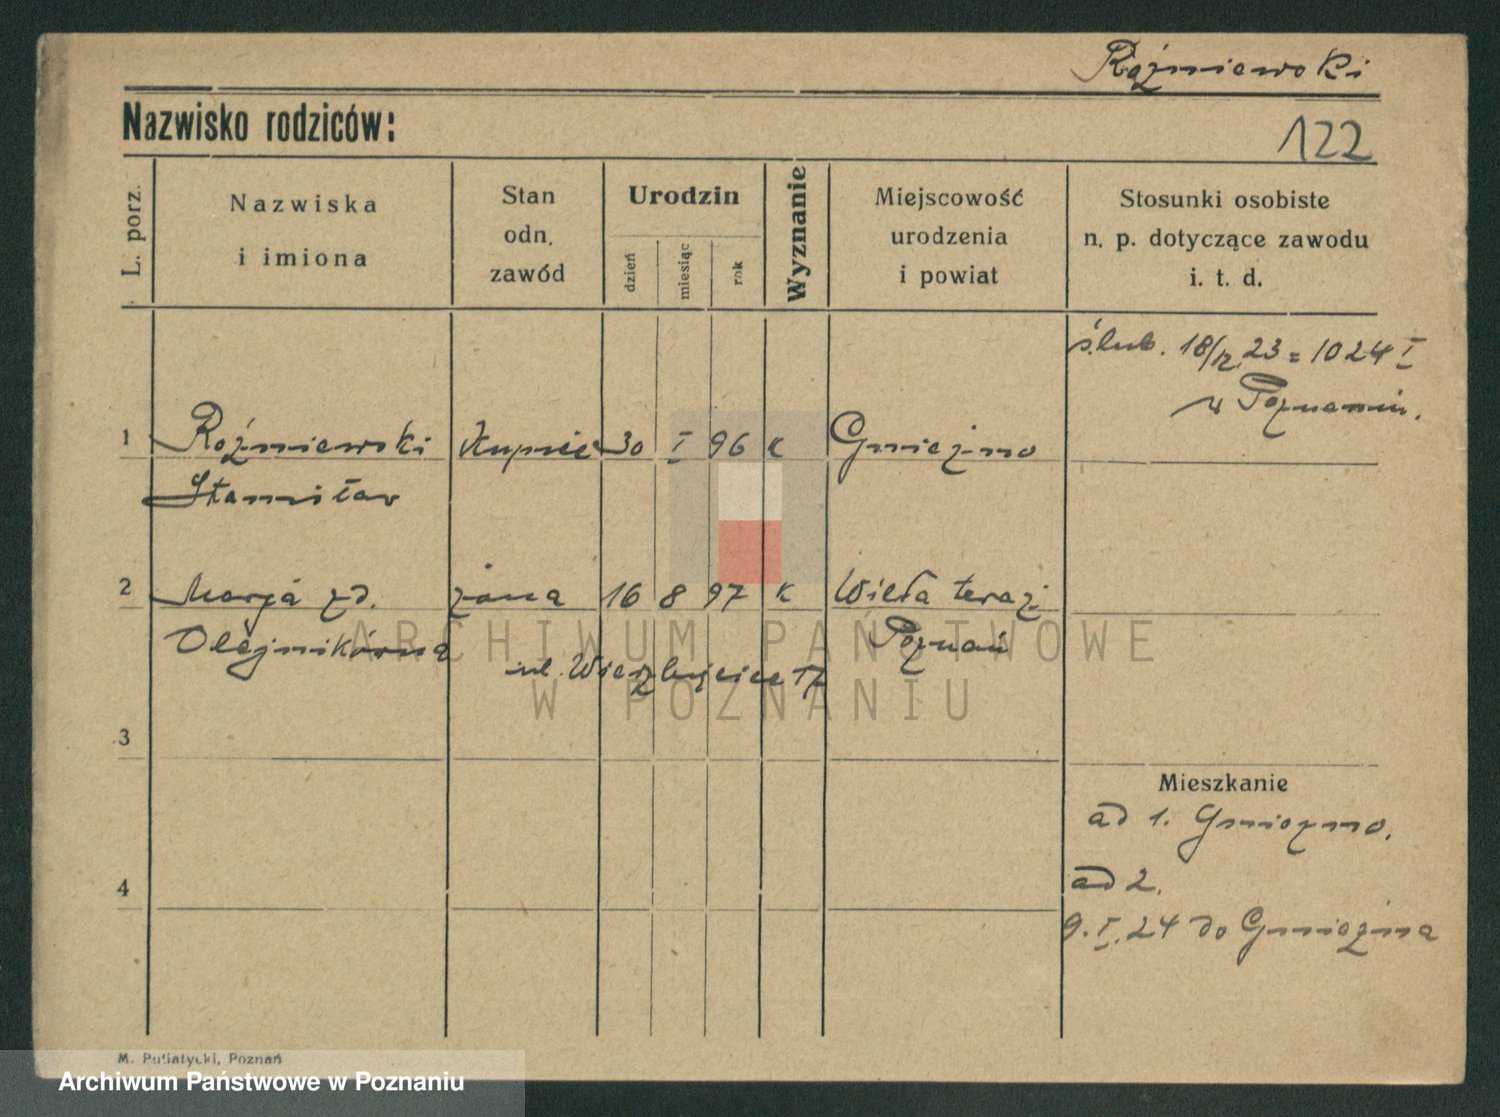 Roźniewski
Nazwisko rodziców:
122
L. porz.
Nazwiska
i imiona
Stan
odn.
zawód
Urodzin
dzień
miesiąc
rok
Wyznanie
Miejscowość
urodzenia
i powiat
Stosunki osobiste
n. p. dotyczące zawodu
i. t. d.
ślub. 18/12 23 = 1024 I
w Poznaniu.
1 Roźniewski Kupiec 30 I 96 K Gniezno
Stanisław
2 Marja zd. żona 16 8 97 K Wiela teraz
Olejnikówna Poznań
ul. Wierzbięcice
3
Mieszkanie
ad 1. Gniezno.
4
ad 2.
9. I. 24 do Gniezna
M. Putiatycki, Poznań
ARCHIWUM PAŃSTWOWE
W POZNANIU
Archiwum Państwowe w Poznaniu